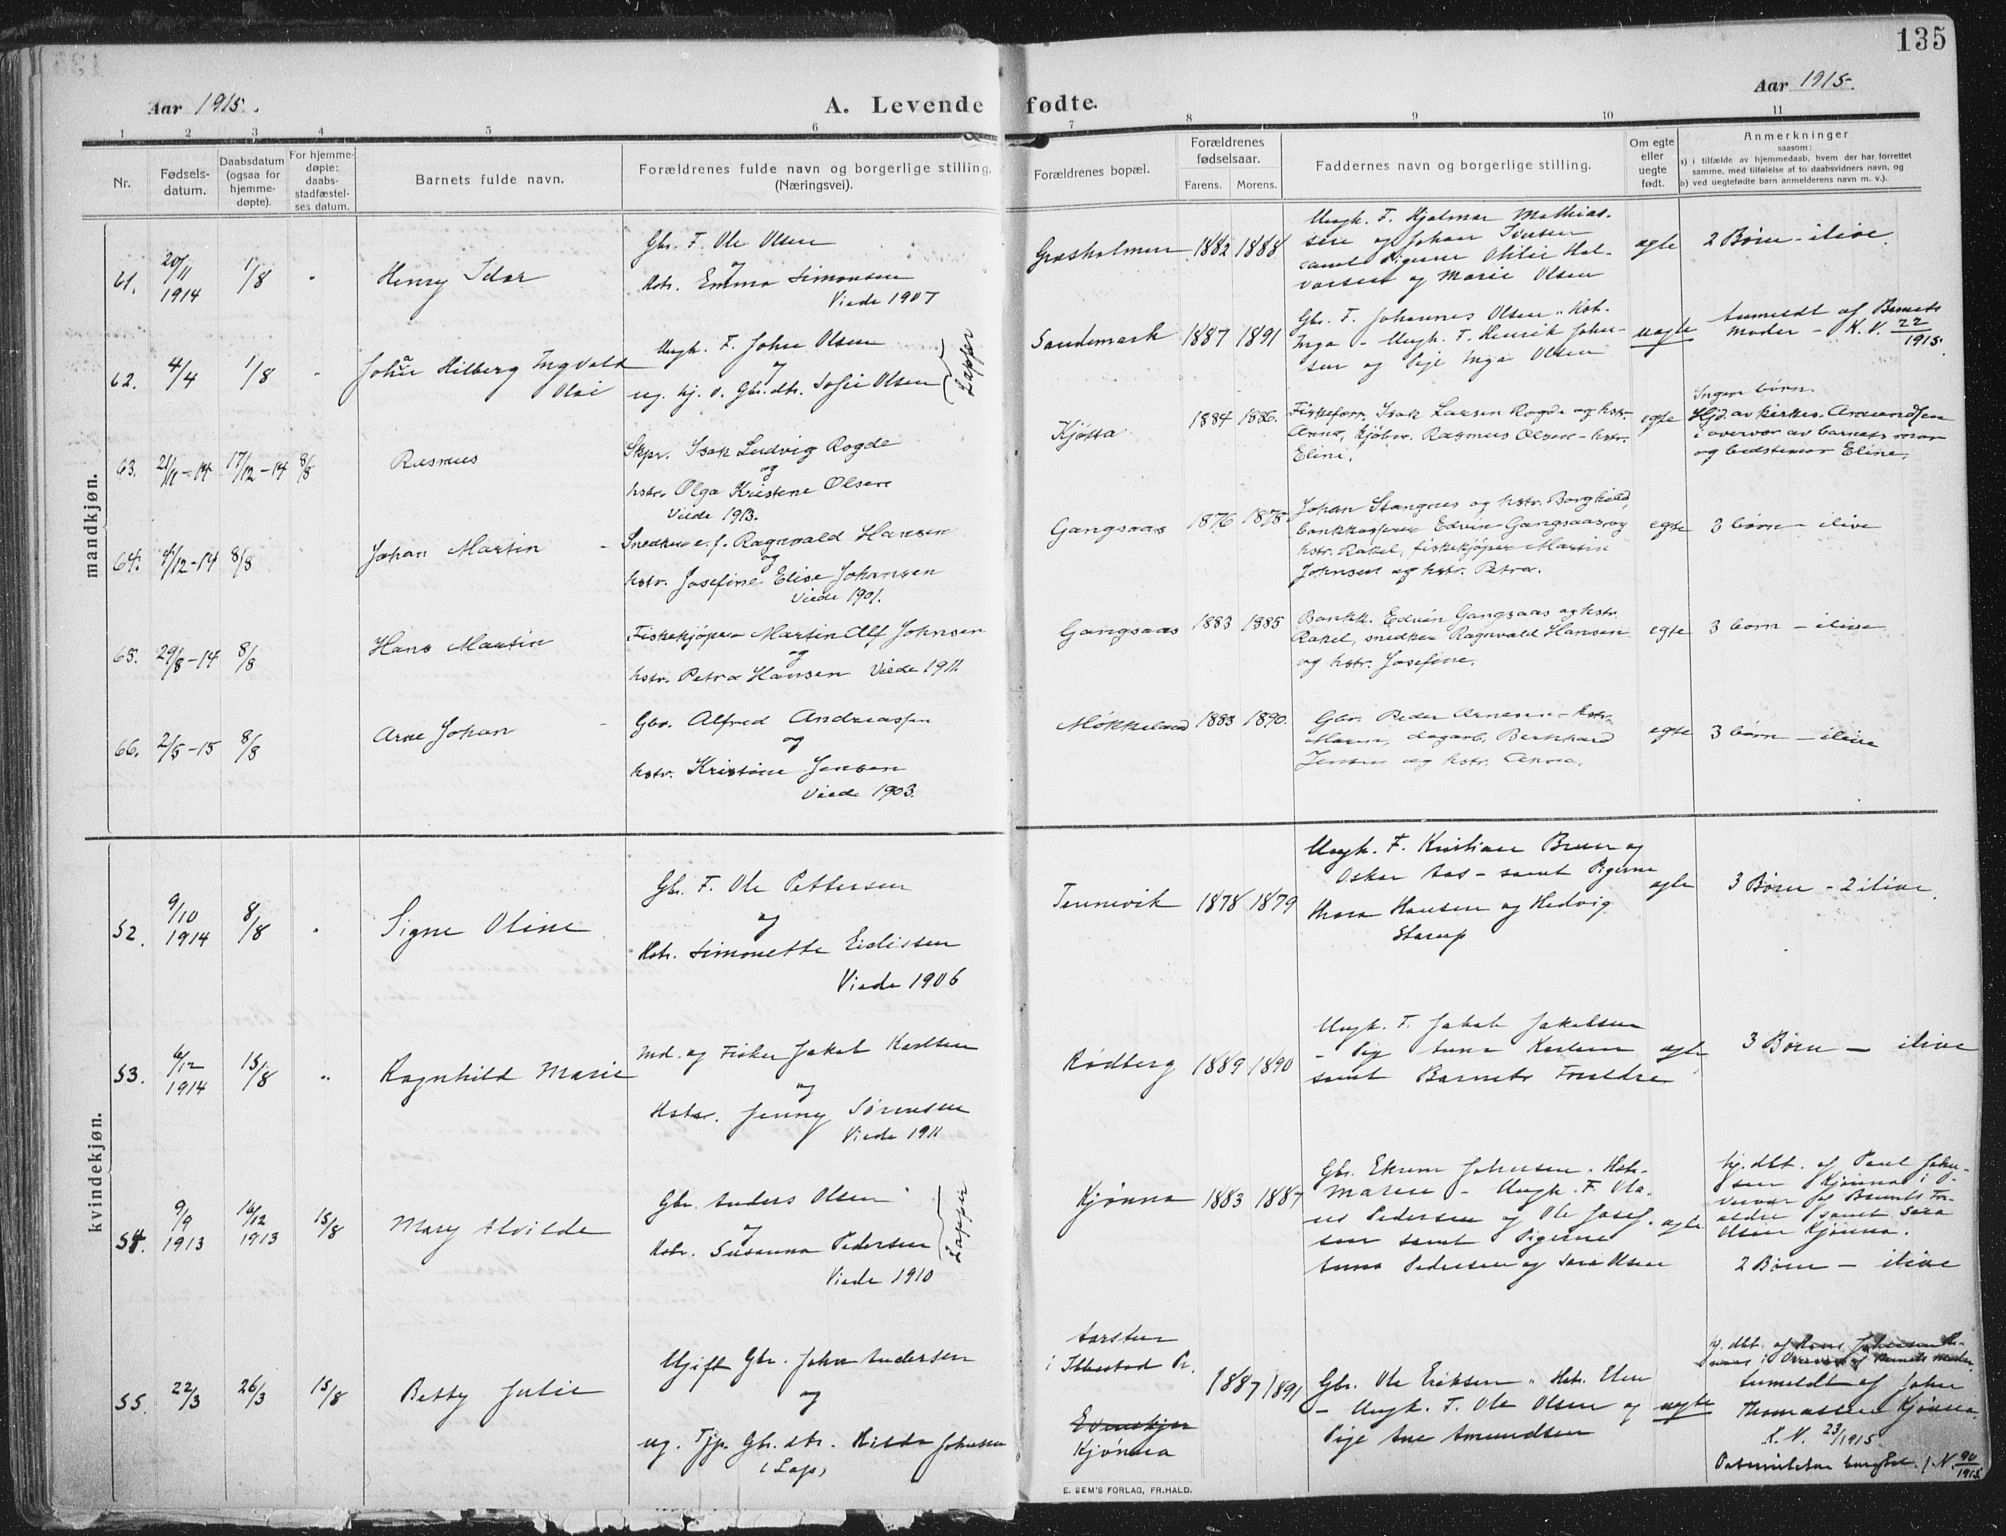 135
Aar 1915.
A. Levende fødte.
Aar 1915.
1 2 3 4 5 6 7 8 9 10 11
Nr.
Fødsels-
datum.
Daabsdatum
(ogsaa for
hjemme-
døpte).
For hjemme-
døpte:
daabs-
stadfæstel-
ses datum.
Barnets fulde navn.
Forældrenes fulde navn og borgerlige stilling.
(Næringsvei).
Forældrenes bopæl.
Forældrenes
fødselsaar.
Farens. Morens.
Faddernes navn og borgerlige stilling.
Om egte
eller
uegte
født.
Anmerkninger
saasom:
a) i tilfælde av hjemmedaab, hvem der har forrettet
samme, med tilføielse af to daabsvidners navn, og
b) ved uegtefødte barn anmelderens navn m. v.).
mandkjøn.
61.
20/11
1914
1/8
"
Henry Idar
Gbr. F. Ole Olsen
og
Hstr. Emma Simonsen
Viede 1907
Græsholmen 1882 1888
Ungk. F. Hjalmar Mathias-
sen og Johan Jensen
samt Pigerne Otilie Hal-
vorsen og Marie Olsen
egte
2 Børn - ilive.
62. 4/4 1/8 "
Johan Hilberg Ingvald
Olai
Ungk. F. Johan Olsen
og
ug. hj. v. Gbr.dtr. Sofie Olsen
Lapper
Sandemark 1887 1891
Gbr. F. Johannes Olsen " Hst.
Inga - Ungk. F. Henrik Johan-
sen og Pige Inga Olsen
uegte
Anmeldt af Barnets
Moder - K. V. 22/1915.
63. 21/11-14 17/12-14 8/8
Rasmus
Skpr. Isak Ludvig Rogde
og
hstr. Olga Kristene Olsen
Viede 1913.
Kjøtta 1884 1886.
Fiskeforr. Isak Larsen Rogde og hstr.
Anna, kjøbm. Rasmus Olsen - hstr.
Eline.
egte
Ingen børn.
Hjd. av kirkes. Amundsen
i overvær av barnets mor
og bedstemor Eline.
64. 4/12-14 8/8
Johan Martin
Snedker e. f. Ragnvald Hansen
og
hstr. Josefine Elise Johansen
Viede 1901.
Gangsaas 1876 1878
Johan Stangnes og hstr. Borghild,
bankkasserer Edvin Gangsaas og
hstr. Rakel, fiskekjøper Martin
Johnsen og hstr. Petra.
egte
3 børn - ilive
65. 29/8-14 8/8
Hans Martin
Fiskekjøper Martin Alf Johnsen
og
hstr. Petra Hansen Viede 1911.
Gangsaas 1883 1885
Bankk. Edvin Gangsaas og hstr.
Rakel, snedker Ragnvald Hansen
og hstr. Josefine.
egte
3 børn - ilive
66. 2/5-15 8/8
Arne Johan
Gbr. Alfred Andreassen
og
hstr. Kristine Jensen
Viede 1903.
Møkkeland 1883 1890.
Gbr. Peder Arnesen - hstr.
Maren, dagarb. Bernhard
Jensen og hstr. Anna.
egte
3 børn - ilive
kvindekjøn.
52.
9/10
1914
8/8
"
Signe Oline
Gbr. F. Ole Pettersen
og
Hstr. Simonette Eidissen
Viede 1906
Tennevik 1878 1879
Ungk. F. Kristian Bruun og
Oskar Aas - samt Pigerne
Thora Hansen og Hedvig
Starup
egte
3 Børn - 2 ilive.
53.
6/12
1914
15/8
"
Ragnhild Marie
Md. og Fisker Jakob Karlsen
og
Hstr. Jenny Sørensen
Viede 1911
Rødberg 1889 1890
Ungk. F. Jakob Jakobsen
- Pige Anna Karlsen
samt Barnets Forældre
egte
3 Børn - ilive
54.
9/9
1913
16/12
1913
15/8
Mary Alvilde
Gbr. Anders Olsen
og
Hstr. Susanna Pedersen
Viede 1910
Lapper
Kjønna 1883 1887
Gbr. Ekrem Johansen " Hst.
Maren - Ungk. F. Ola-
us Pedersen og Ole Josef-
sen samt Pigerne
Anna Pedersen og Sara Olsen
egte
hj. dbt. af Paul Johan-
sen Kjønna i O-
vervær af Barnets For-
ældre samt Sara
Olsen Kjønna.
2 Børn - ilive
55. 22/3 26/3 15/8
Betsy Julie
Ugift Gbr. Johan Andersen
og
ug. Tjp. Gbr. dtr. Hilda Johnsen
(Lap)
Aarstein
i Ibbestad Pr.
Evenskjær
Kjønna
1887 1891
Gbr. Ole Eriksen " Hst. Elen
- Ungk. F. Ole Olsen og
Pige Ane Amundsen
uegte
hj. dbt. af
Anmeldt af Johan
Thomassen Kjønna.
K. V. 23/1915.
J. N. 90/1915.
E. SEM'S FORLAG, FR.HALD.